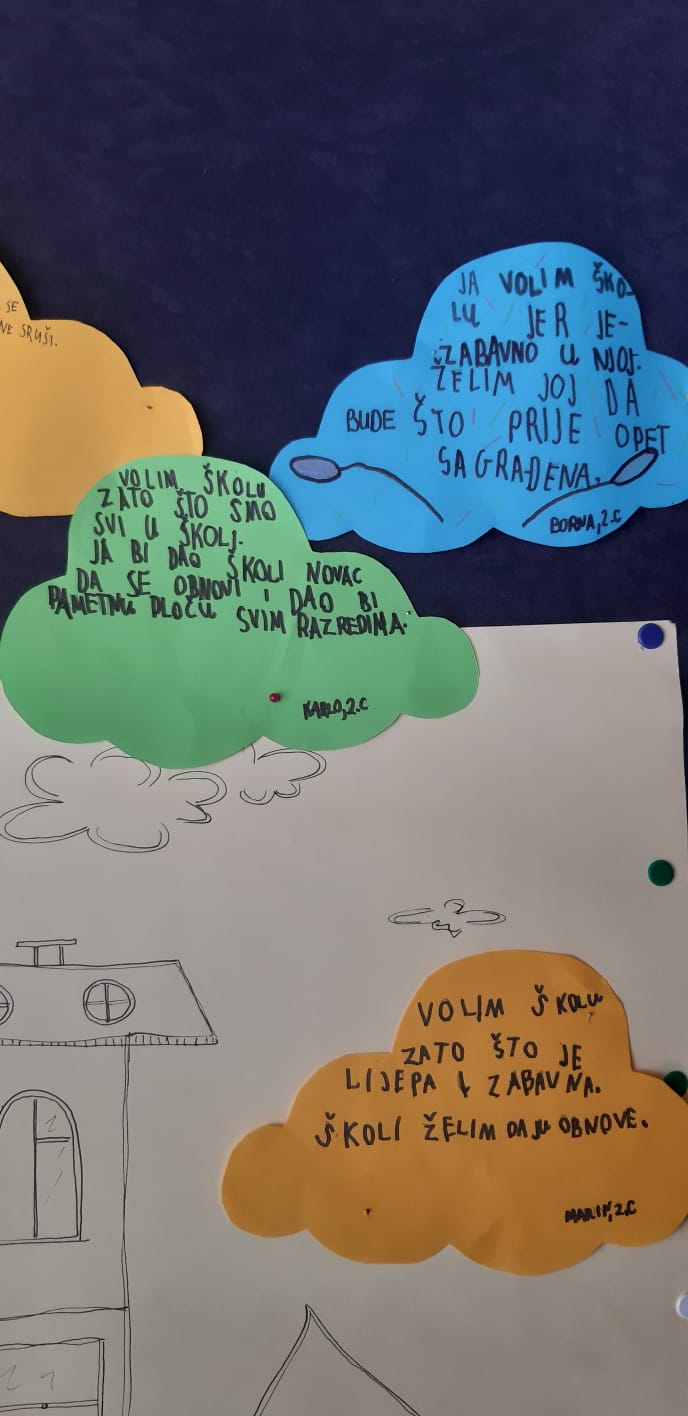 SE
NE SRUŠI.
JA VOLIM ŠKO-
LU JER JE-
ZABAVNO U NJOJ.
ŽELIM JOJ DA
BUDE ŠTO PRIJE OPET
SAGRAĐENA.
BORNA, 2.C
VOLIM ŠKOLU
ZATO ŠTO SMO
SVI U ŠKOLJ.
JA BI DAO ŠKOLI NOVAC
DA SE OBNOVI I DAO BI
PAMETNU PLOČU SVIM RAZREDIMA.
KARLO, 2.C
VOLIM ŠKOLU
ZATO ŠTO JE
LIJEPA I ZABAVNA.
ŠKOLI ŽELIM DA JU OBNOVE.
MARIN, 2.C